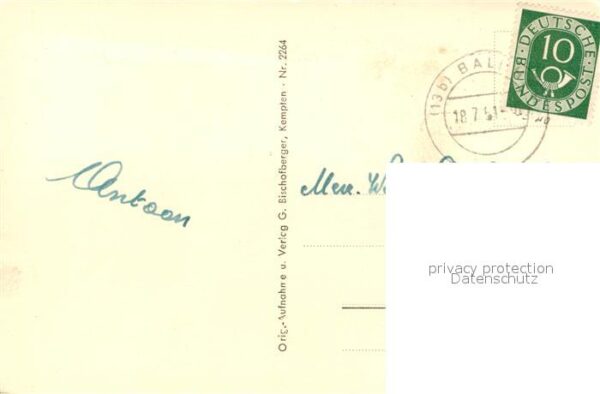 DEUTSCHE
BUNDESPOST
10
(13b) BAL
18.7.51
Antoon
Orig.-Aufnahme u. Verlag G. Bischofberger, Kempten · Nr. 2264
privacy protection
Datenschutz